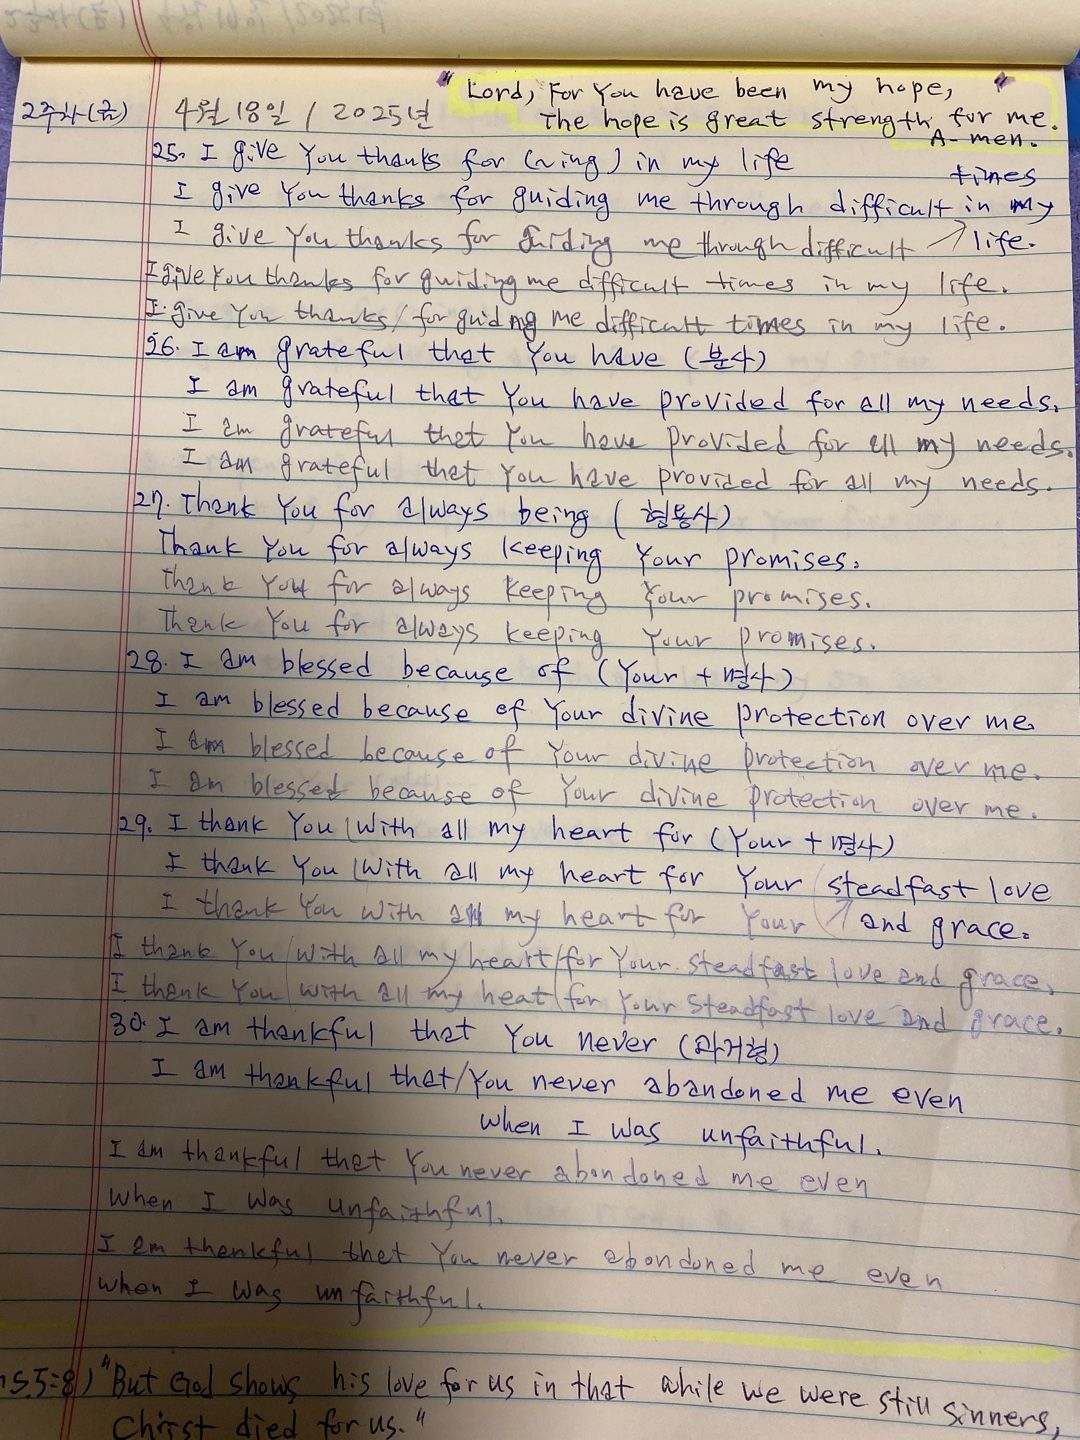 " Lord, For You have been my hope, "
The hope is great strength for me.
A-men.
2주차(금) 4월 18일 / 2025년
25. I give You thanks for (~ing) in my life
times
I give You thanks for guiding me through difficult in my
life.
I give You thanks for guiding me through difficult
I give You thanks for guiding me difficult times in my life.
I give You thanks / for guiding me difficult times in my life.
26. I am grateful that You have (분사)
I am grateful that You have provided for all my needs.
I am grateful that You have provided for all my needs.
I am grateful that You have provided for all my needs.
27. Thank You for always being (형용사)
Thank You for always keeping Your promises.
Thank You for always keeping Your promises.
Thank You for always keeping Your promises.
28. I am blessed because of (Your + 명사)
I am blessed because of Your divine protection over me.
I am blessed because of Your divine protection over me.
I am blessed because of Your divine protection over me.
29. I thank You / With all my heart for (Your + 명사)
I thank You / With all my heart for Your steadfast love
and grace.
I thank You With all my heart for Your
I thank You / With all my heart / for Your steadfast love and grace.
I thank You / With all my heat / for Your steadfast love and grace.
30. I am thankful that You never (과거형)
I am thankful that / You never abandoned me even
when I was unfaithful.
I am thankful that You never abandoned me even
when I was unfaithful.
I am thankful that You never abandoned me even
when I was unfaithful.
5:8) "But God shows his love for us in that while we were still sinners,
Christ died for us."